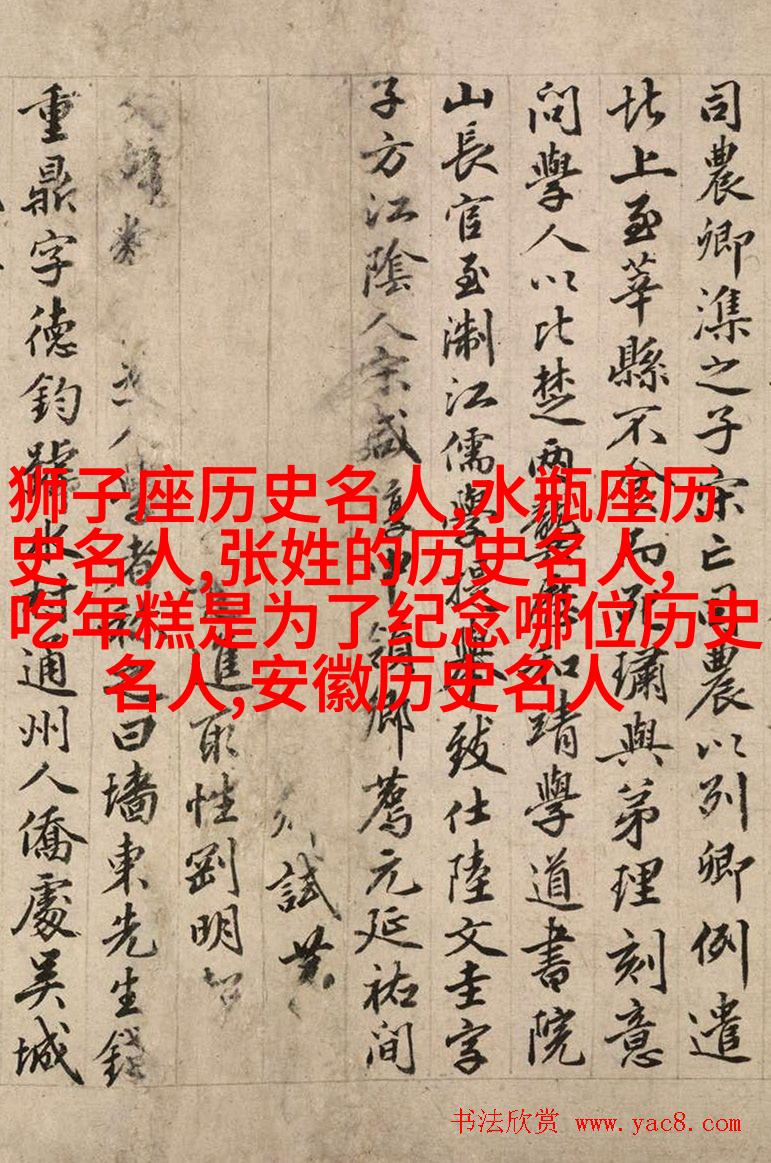 狮子座历史名人,水瓶座历
史名人,张姓的历史名人,
吃年糕是为了纪念哪位历史
名人,安徽历史名人
司農卿潗之子宋亡司農以列卿例遣
北上至莘縣不食而死與弟理刻意
問學人以比楚兩龔歷和靖學道書院
山長官至淛江儒學提舉致仕陸文圭字
子方江陰人宋咸中領鄉薦元延祐間
試
進取性剛明
人學者之曰墻東先生錢
重鼎字德鈞號水村通州人僑處吳城
书法欣赏 www.yac8.com